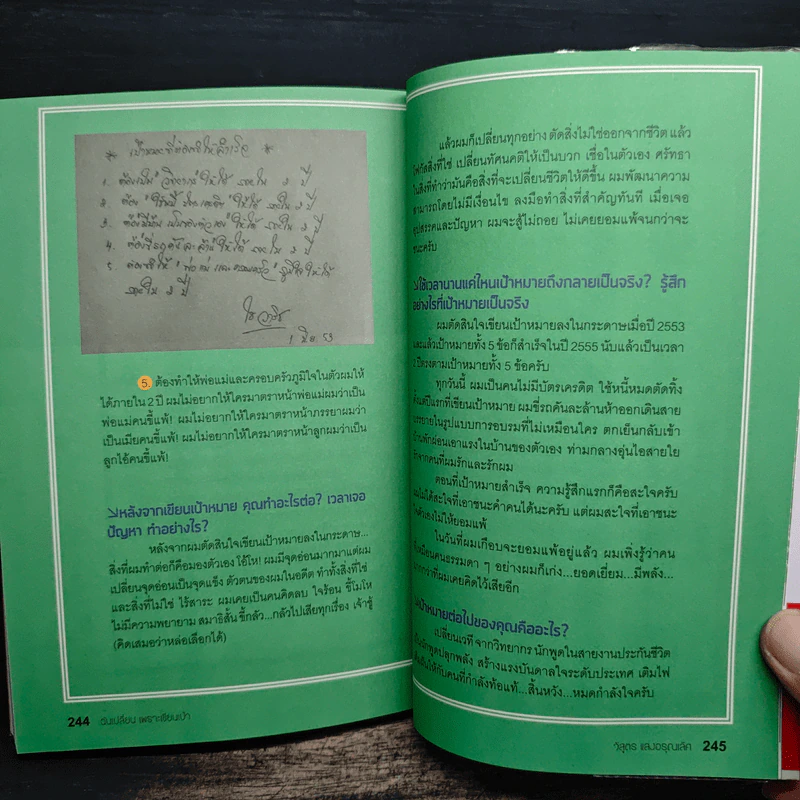 * เป้าหมายที่ต้องทำให้สำเร็จ *
1. ต้องเป็น "วิทยากร" ให้ได้ ภายใน 2 ปี
2. ต้อง "ใช้หนี้ บัตรเครดิต" ให้ได้ ภายใน 2 ปี
3. ต้องมีบ้าน เป็นของตัวเอง ให้ได้ ภายใน 2 ปี
4. ต้องขี่รถคันละล้าน ให้ได้ ภายใน 2 ปี
5. ต้องทำให้ "พ่อ แม่ และครอบครัว" ภูมิใจ ให้ได้
ภายใน 2 ปี
1 มิย 53
5. ต้องทำให้พ่อแม่และครอบครัวภูมิใจในตัวผมให้
ได้ภายใน 2 ปี ผมไม่อยากให้ใครมาตราหน้าพ่อแม่ผมว่าเป็น
พ่อแม่คนขี้แพ้! ผมไม่อยากให้ใครมาตราหน้าภรรยาผมว่า
เป็นเมียคนขี้แพ้! ผมไม่อยากให้ใครมาตราหน้าลูกผมว่าเป็น
ลูกไอ้คนขี้แพ้!
หลังจากเขียนเป้าหมาย คุณทำอะไรต่อ? เวลาเจอ
ปัญหา ทำอย่างไร?
หลังจากผมตัดสินใจเขียนเป้าหมายลงในกระดาษ...
สิ่งที่ผมทำต่อก็คือมองตัวเอง โอ้โห! ผมมีจุดอ่อนมากมาแต่ผม
เปลี่ยนจุดอ่อนเป็นจุดแข็ง ตัวตนของผมในอดีต ทำทั้งสิ่งที่ใช่
และสิ่งที่ไม่ใช่ ไร้สาระ ผมเคยเป็นคนคิดลบ ใจร้อน ขี้โมโห
ไม่มีความพยายาม สมาธิสั้น ขี้กลัว...กลัวไปเสียทุกเรื่อง เจ้าชู้
(คิดเสมอว่าหล่อเลือกได้)
244 ฉันเปลี่ยน เพราะเขียนเป้า
แล้วผมก็เปลี่ยนทุกอย่าง ตัดสิ่งไม่ใช่ออกจากชีวิต แล้ว
โฟกัสสิ่งที่ใช่ เปลี่ยนทัศนคติให้เป็นบวก เชื่อในตัวเอง ศรัทธา
ในสิ่งที่ทำว่ามันคือสิ่งที่จะเปลี่ยนชีวิตให้ดีขึ้น ผมพัฒนาความ
สามารถโดยไม่มีเงื่อนไข ลงมือทำสิ่งที่สำคัญทันที เมื่อเจอ
อุปสรรคและปัญหา ผมจะสู้ไม่ถอย ไม่เคยยอมแพ้จนกว่าจะ
ชนะครับ
ใช้เวลานานแค่ไหนเป้าหมายถึงกลายเป็นจริง? รู้สึก
อย่างไรที่เป้าหมายเป็นจริง
ผมตัดสินใจเขียนเป้าหมายลงในกระดาษเมื่อปี 2553
และแล้วเป้าหมายทั้ง 5 ข้อก็สำเร็จในปี 2555 นับแล้วเป็นเวลา
2 ปีตรงตามเป้าหมายทั้ง 5 ข้อครับ
ทุกวันนี้ ผมเป็นคนไม่มีบัตรเครดิต ใช้หนี้หมดตัดทิ้ง
ตั้งแต่ปีแรกที่เขียนเป้าหมาย ผมขี่รถคันละล้านห้าออกเดินสาย
บรรยายในรูปแบบการอบรมที่ไม่เหมือนใคร ตกเย็นกลับเข้า
บ้านพักผ่อนเอาแรงในบ้านของตัวเอง ท่ามกลางอุ่นไอสายใย
รักจากคนที่ผมรักและรักผม
ตอนที่เป้าหมายสำเร็จ ความรู้สึกแรกก็คือสะใจครับ
ผมไม่ได้สะใจที่เอาชนะคำคนได้นะครับ แต่ผมสะใจที่เอาชนะ
ใจตัวเองไม่ให้ยอมแพ้
ในวันที่ผมเกือบจะยอมแพ้อยู่แล้ว ผมเพิ่งรู้ว่าคน
ที่เหมือนคนธรรมดา ๆ อย่างผมก็เก่ง...ยอดเยี่ยม...มีพลัง...
มากกว่าที่ผมเคยคิดไว้เสียอีก
เป้าหมายต่อไปของคุณคืออะไร?
เปลี่ยนเวที จากวิทยากร นักพูดในสายงานประกันชีวิต
เป็นนักพูดปลุกพลัง สร้างแรงบันดาลใจระดับประเทศ เติมไฟ
ให้กับคนที่กำลังท้อแท้...สิ้นหวัง...หมดกำลังใจครับ
วิสูตร แสงอรุณเลิศ 245